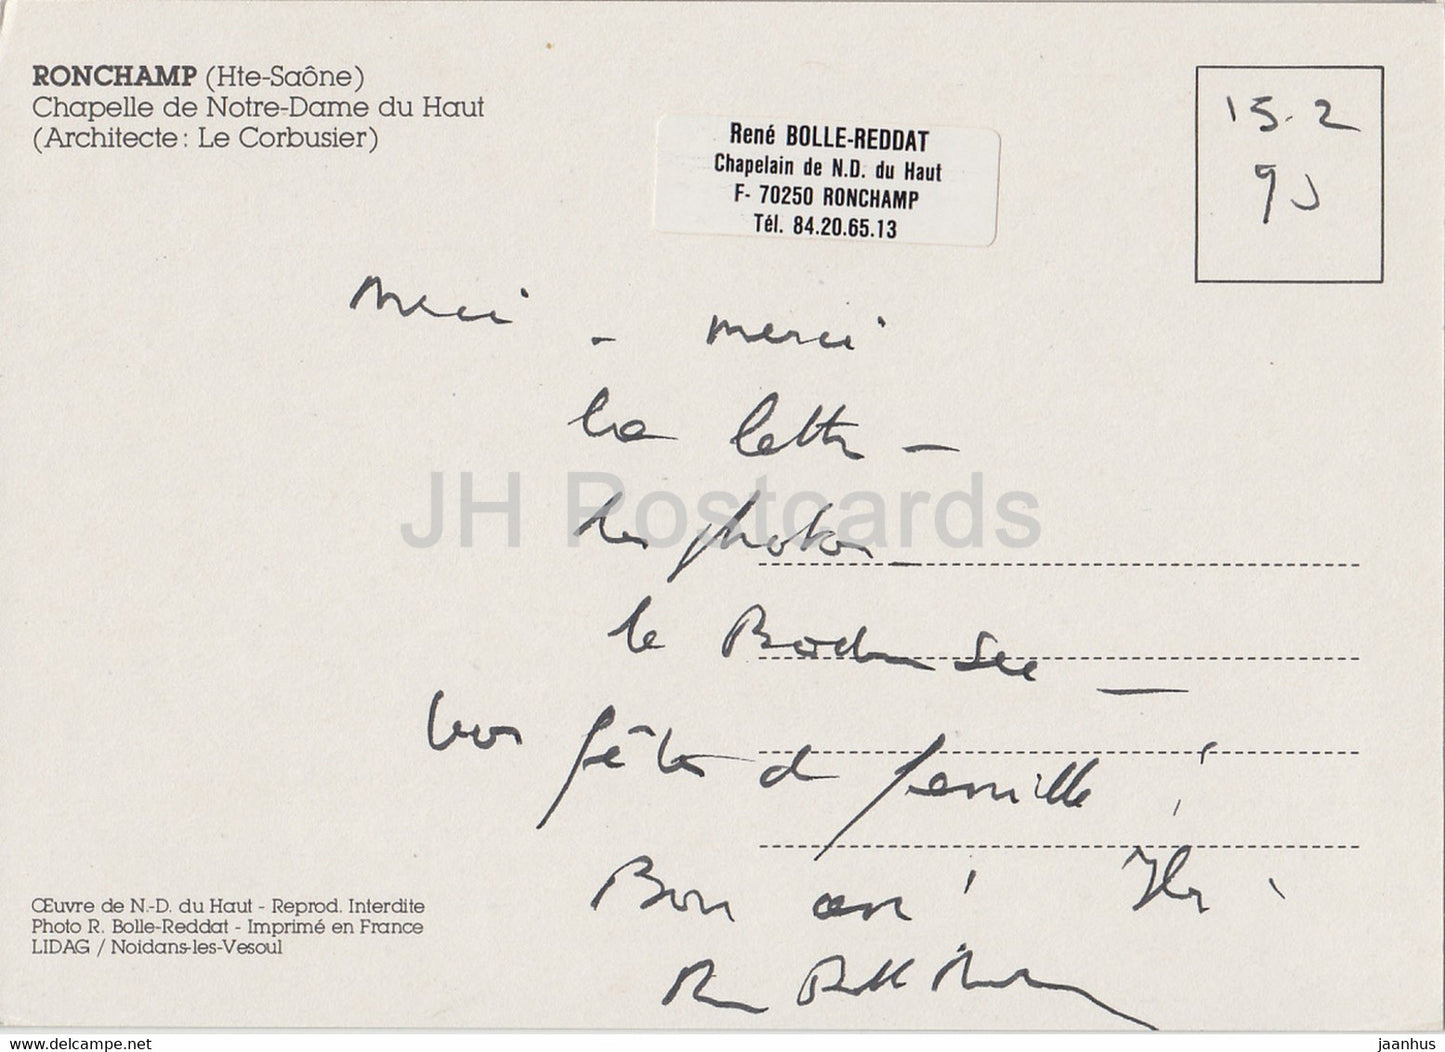 RONCHAMP (Hte-Saône)
Chapelle de Notre-Dame du Haut
(Architecte : Le Corbusier)
René BOLLE-REDDAT
Chapelain de N.D. du Haut
F- 70250 RONCHAMP
Tél. 84.20.65.13
15.2
Merci - merci
la lettre -
les photos -
le Bodensee -
vos fêtes de famille !
Bon an !
R Bolle Reddat
JH Postcards
Œuvre de N.-D. du Haut - Reprod. Interdite
Photo R. Bolle-Reddat - Imprimé en France
LIDAG / Noidans-les-Vesoul
www.delcampe.net
jaanhus